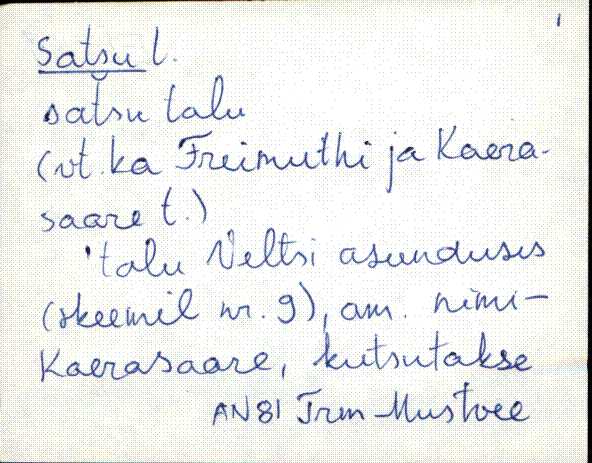 1
Satsu t.
satsu talu
(vt. ka Freimuthi ja Kaera-
saare t.)
'talu Veltsi asunduses
(skeemil nr. 9), am. nimi-
Kaerasaare, kutsutakse
AN 81 Trm-Mustvee